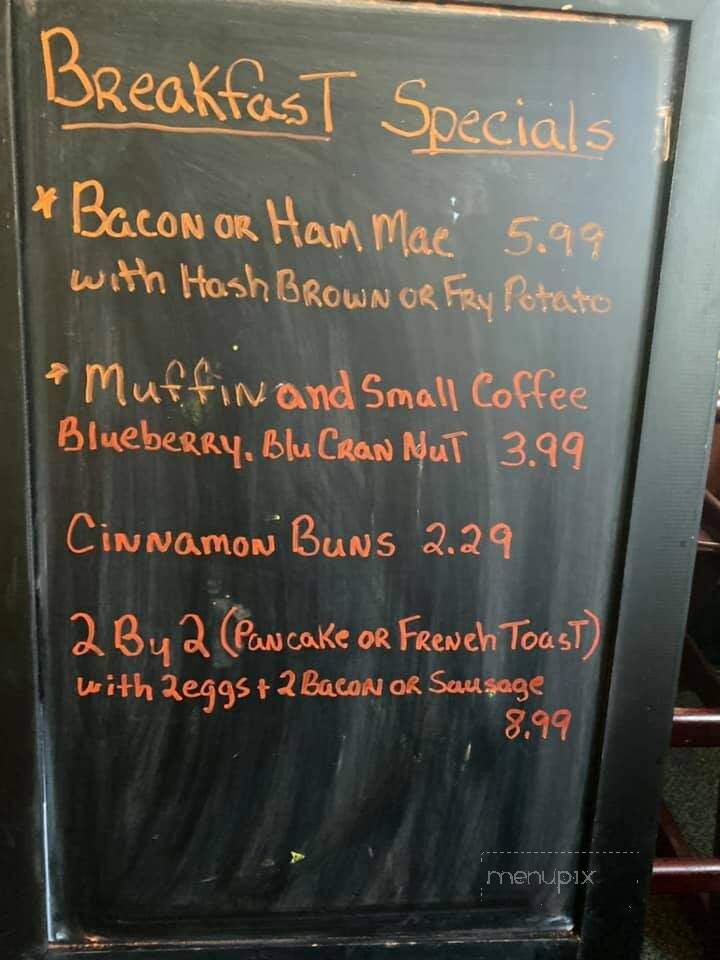 Breakfast Specials
* Bacon or Ham Mac 5.99
with Hash Brown or Fry Potato
* Muffin and Small Coffee
Blueberry. Blu Cran Nut 3.99
Cinnamon Buns 2.29
2 By 2 (Pancake or French Toast)
with 2eggs + 2 Bacon or Sausage
8.99
menupix